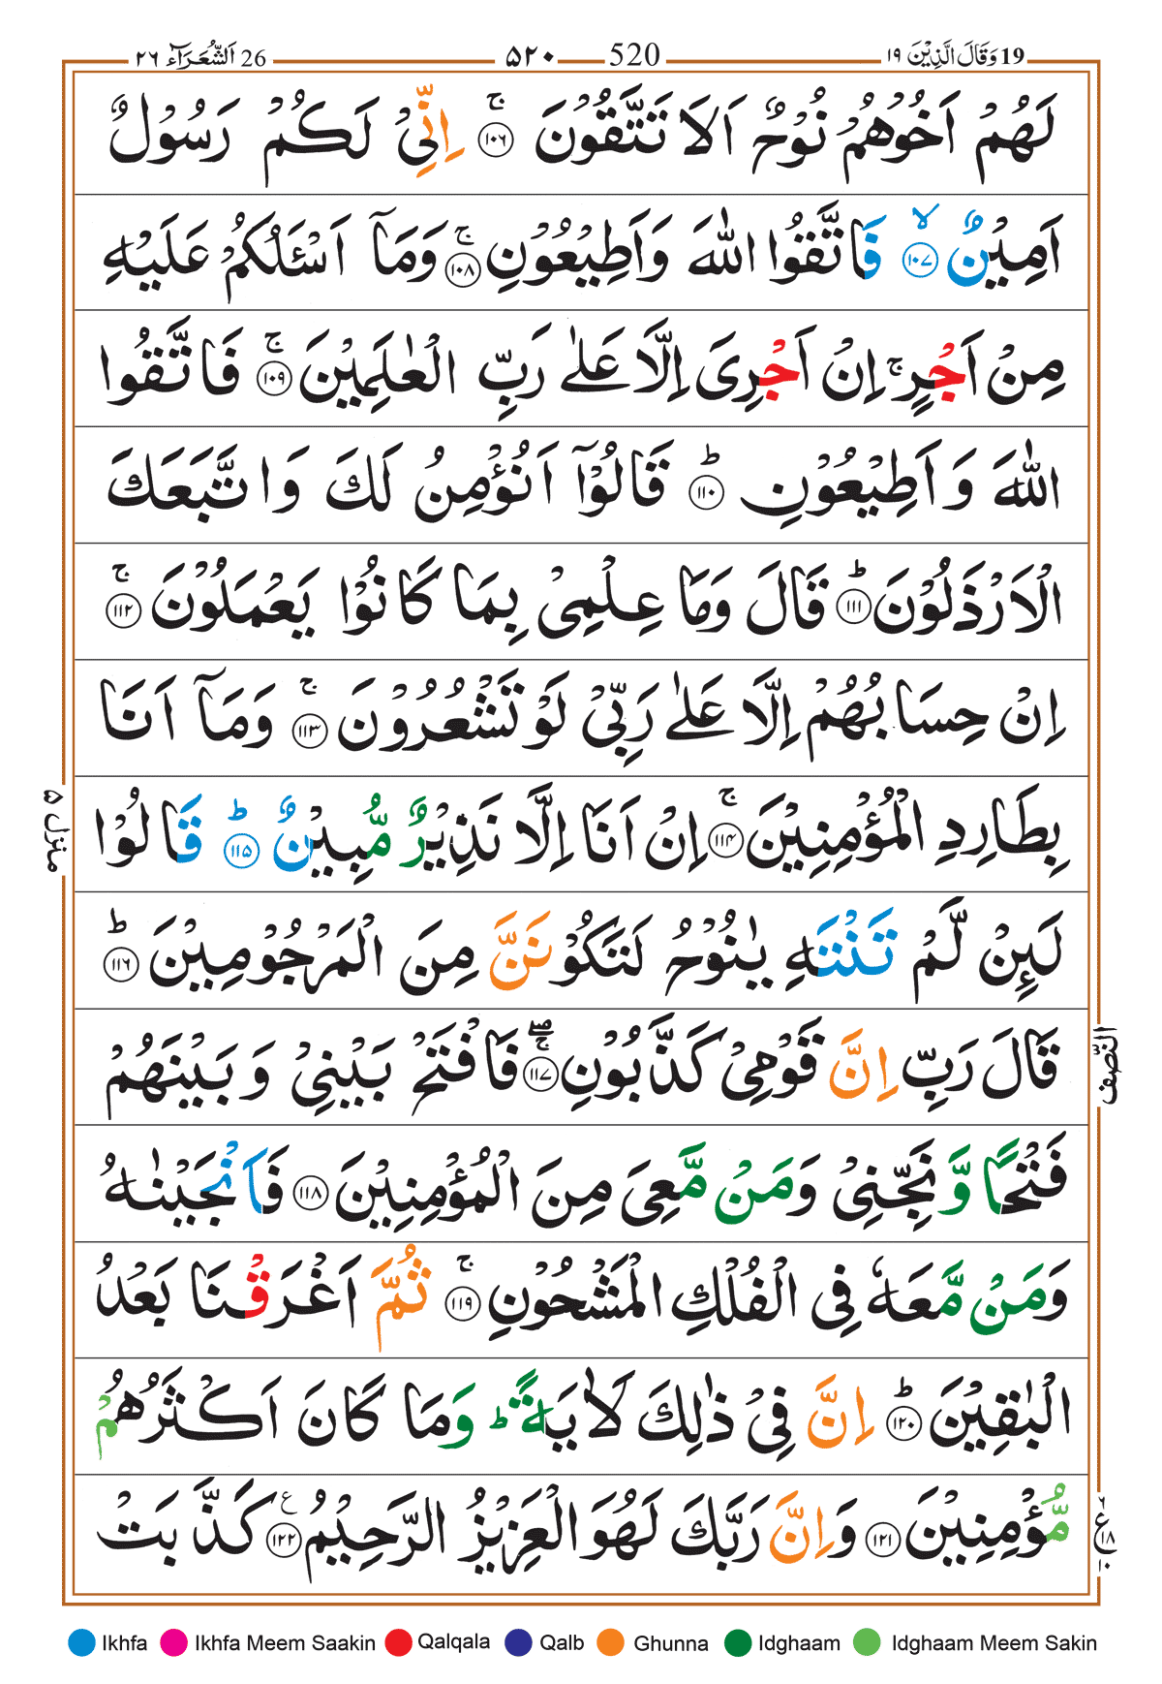 19 وَقَالَ الَّذِيْنَ ١٩ 520 ۵۲۰ 26 اَلشُّعَرَآء ٢٦
لَهُمْ اَخُوْهُمْ نُوْحٌ اَلَا تَتَّقُوْنَ ۚ‏ ﴿۱۰۶﴾ اِنِّىْ لَـكُمْ رَسُوْلٌ
اَمِيْنٌ ۙ‏ ﴿۱۰۷﴾ فَاتَّقُوا اللّٰهَ وَاَطِيْعُوْنِ‌ۚ‏ ﴿۱۰۸﴾ وَمَاۤ اَسْـَٔـلُكُمْ عَلَيْهِ
مِنْ اَجْرٍ‌ۚ اِنْ اَجْرِىَ اِلَّا عَلٰى رَبِّ الْعٰلَمِيْنَ‌ۚ‏ ﴿۱۰۹﴾ فَاتَّقُوا
اللّٰهَ وَاَطِيْعُوْنِ ؕ‏ ﴿۱۱۰﴾ قَالُوْۤا اَنُؤْمِنُ لَكَ وَاتَّبَعَكَ
الْاَرْذَلُوْنَ ؕ‏ ﴿۱۱۱﴾ قَالَ وَمَا عِلْمِىْ بِمَا كَانُوْا يَعْمَلُوْنَ‌ۚ‏ ﴿۱۱۲﴾
اِنْ حِسَابُهُمْ اِلَّا عَلٰى رَبِّىْ لَوْ تَشْعُرُوْنَ‌ۚ‏ ﴿۱۱۳﴾ وَمَاۤ اَنَا
بِطَارِدِ الْمُؤْمِنِيْنَ‌ۚ‏ ﴿۱۱۴﴾ اِنْ اَنَا اِلَّا نَذِيْرٌ مُّبِيْنٌ ؕ‏ ﴿۱۱۵﴾ قَالُوْا
لَٮِٕنْ لَّمْ تَنْتَهِ يٰـنُوْحُ لَـتَكُوْنَنَّ مِنَ الْمَرْجُوْمِيْنَ ؕ‏ ﴿۱۱۶﴾
قَالَ رَبِّ اِنَّ قَوْمِىْ كَذَّبُوْنِ‌ ۖ‌ۚ‏ ﴿۱۱۷﴾ فَافْتَحْ بَيْنِىْ وَبَيْنَهُمْ
فَتْحًا وَّنَجِّنِىْ وَمَنْ مَّعِىَ مِنَ الْمُؤْمِنِيْنَ‏ ﴿۱۱۸﴾ فَاَنْجَيْنٰهُ
وَمَنْ مَّعَهٗ فِى الْفُلْكِ الْمَشْحُوْنِ‌ۚ‏ ﴿۱۱۹﴾ ثُمَّ اَغْرَقْنَا بَعْدُ
الْبٰقِيْنَ ؕ‏ ﴿۱۲۰﴾ اِنَّ فِىْ ذٰلِكَ لَاٰيَةً ؕ وَّمَا كَانَ اَكْثَرُهُمْ
مُّؤْمِنِيْنَ‏ ﴿۱۲۱﴾ وَاِنَّ رَبَّكَ لَهُوَ الْعَزِيْزُ الرَّحِيْمُ ﴿۱۲۲﴾ ع كَذَّبَتْ
منزل ۵
النّصف
Ikhfa Ikhfa Meem Saakin Qalqala Qalb Ghunna Idghaam Idghaam Meem Sakin